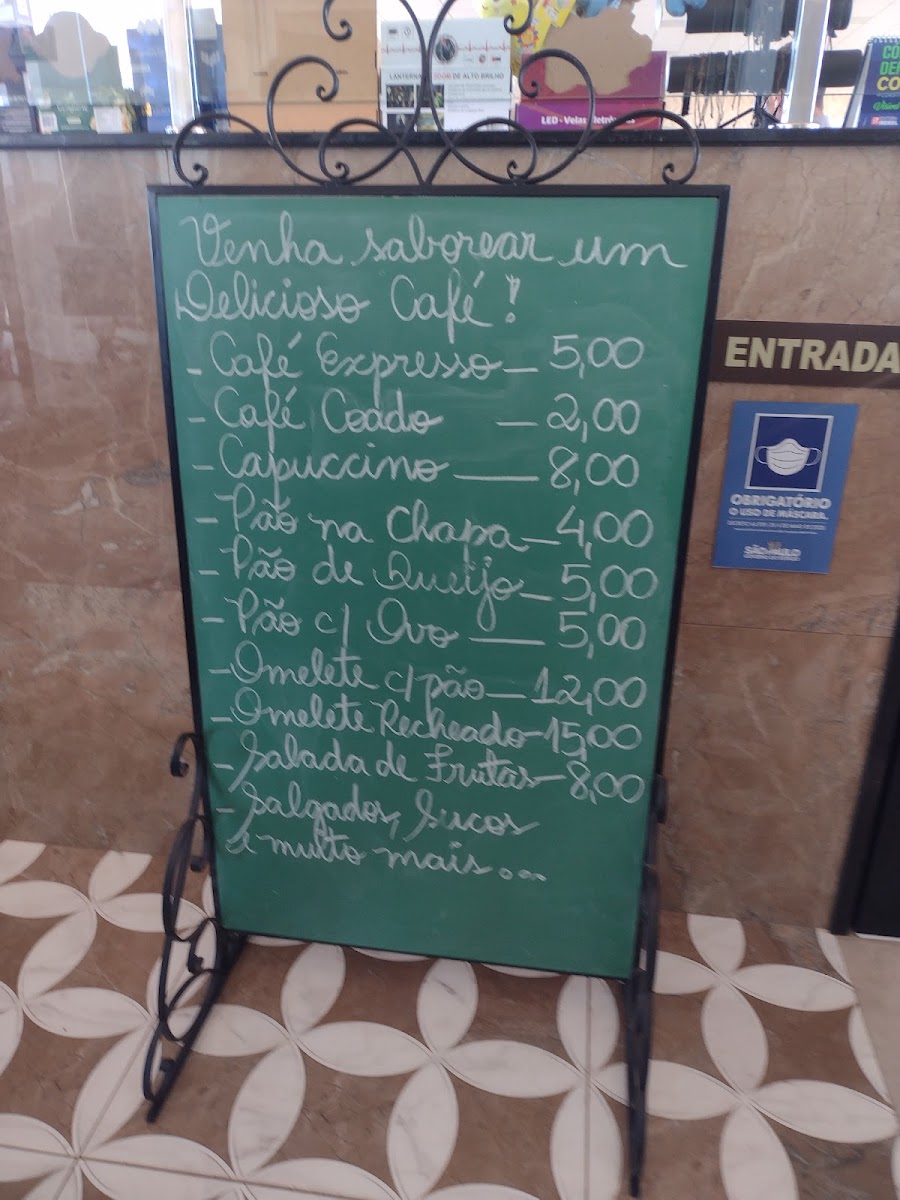 LANTERNA ZOOM DE ALTO BRILHO
LED - Velas Eletrônicas
Venha saborear um
Delicioso Café!
- Café Expresso — 5,00
- Café Coado — 2,00
- Capuccino — 8,00
- Pão na Chapa — 4,00
- Pão de Queijo — 5,00
- Pão c/ Ovo — 5,00
- Omelete c/ pão — 12,00
- Omelete Recheado - 15,00
- Salada de Frutas - 8,00
- Salgados, Sucos
e muito mais...
ENTRADA
OBRIGATÓRIO
O USO DE MÁSCARA.
SÃO PAULO